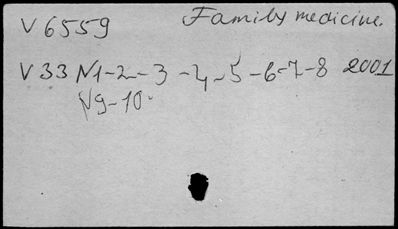 V6559 Family medicine.
V33 N1-2-3-4-5-6-7-8 2001
N9-10.